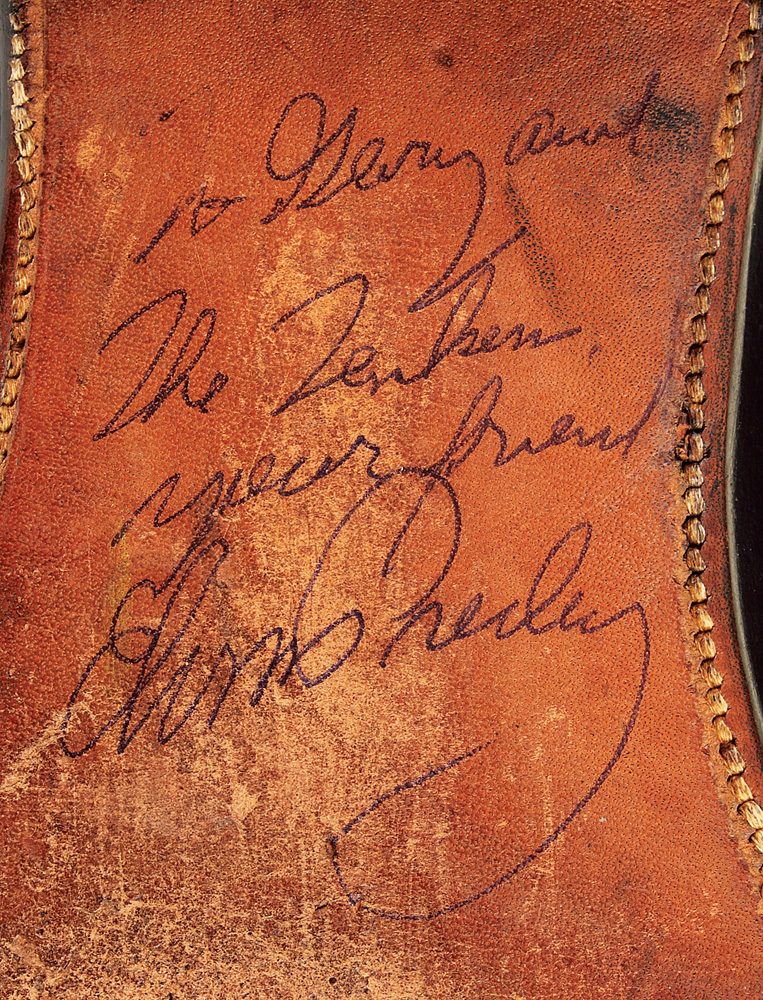 to Gary and
The
your friend
Elvis Presley